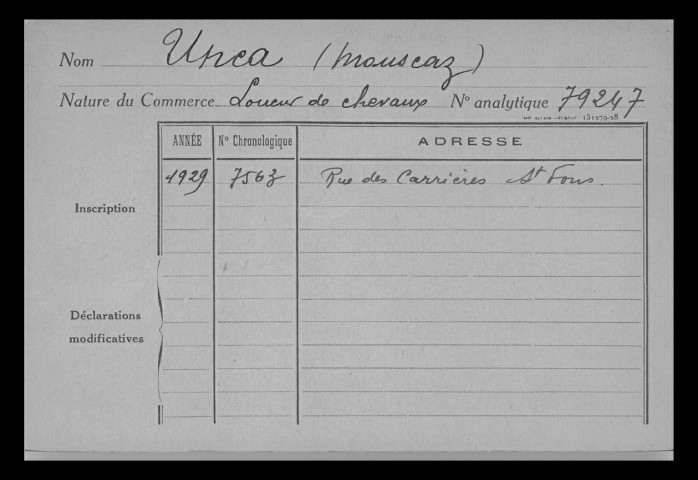 Nom Unca (Mouscaz)
Nature du Commerce Loueur de chevaux N° analytique 79247
ANNÉE N° Chronologique ADRESSE
1929 7563 Rue des Carrières St Fons.
Inscription
Déclarations
modificatives